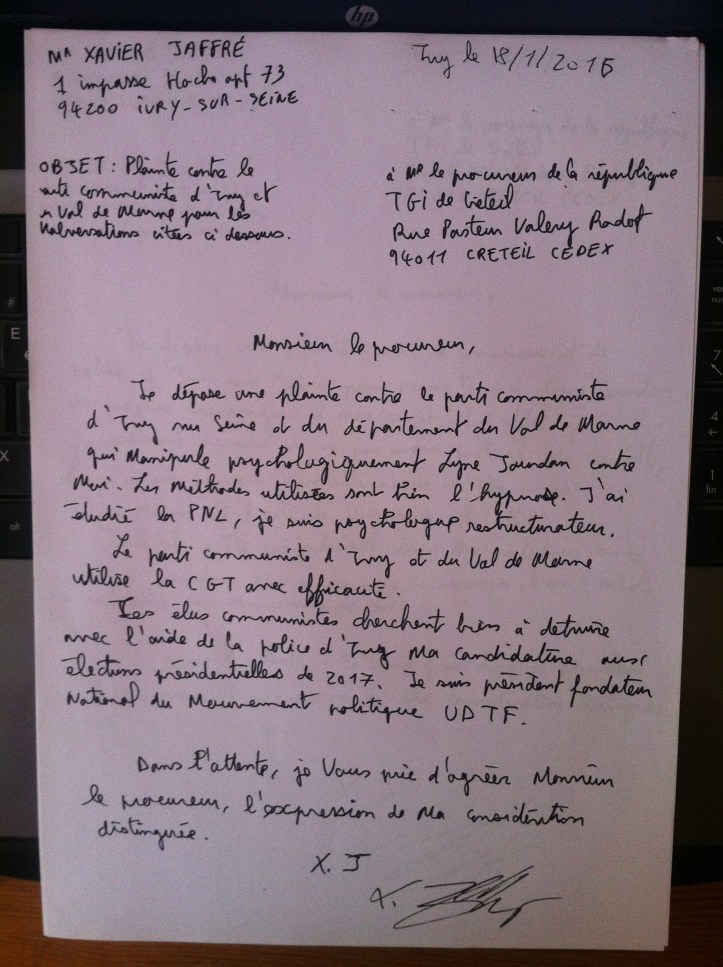 hp
Mr XAVIER JAFFRÉ
1 impasse Hoche apt 73
94200 IVRY-SUR-SEINE
Ivry le 18/1/2015
OBJET : Plainte contre le
parti communiste d'Ivry et
Val de Marne pour les
Malversations citées ci dessous.
à Mr le procureur de la république
TGi de Creteil
Rue Pasteur Valery Radot
94011 CRETEIL CEDEX
Monsieur le procureur,
Je dépose une plainte contre le parti communiste
d'Ivry sur Seine et du département du Val de Marne
qui Manipule psychologiquement Lyne Jourdan contre
Moi. Les Méthodes utilisées sont bien l'hypnose. J'ai
étudié la PNL, je suis psychologue restructurateur.
Le parti communiste d'Ivry et du Val de Marne
utilise la CGT avec efficacité.
Les élus communistes cherchent bien à detruire
avec l'aide de la police d'Ivry Ma candidature aux
élections présidentielles de 2017. Je suis président fondateur
National du Mouvement politique UDTF.
Dans l'attente, je Vous prie d'agréer Monsieur
le procureur, l'expression de Ma considération
distinguée.
X. J
X.